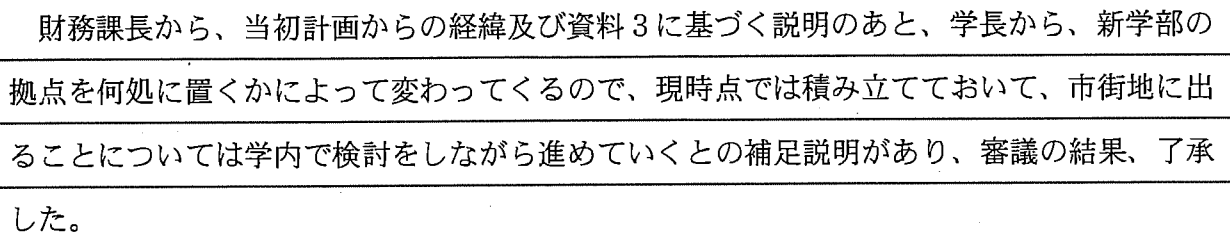 財務課長から、当初計画からの経緯及び資料３に基づく説明のあと、学長から、新学部の
拠点を何処に置くかによって変わってくるので、現時点では積み立てておいて、市街地に出
ることについては学内で検討をしながら進めていくとの補足説明があり、審議の結果、了承
した。